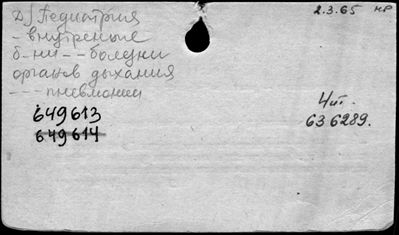 Д) Педиатрия
2.3.65 нр
- внутренные
б-ни -- болезни
органов дыхания
--- пневмонии
649613
649614
4 шт.
636289.